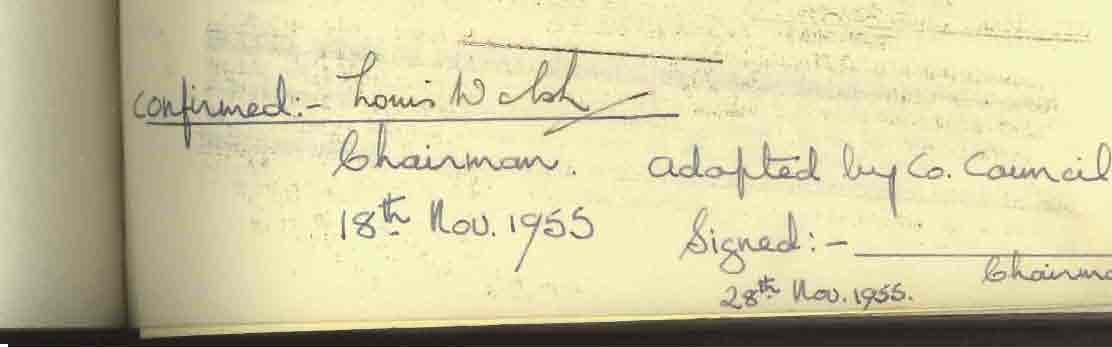 Confirmed:- Louis Walsh
Chairman. adopted by Co. Council
18th Nov. 1955 Signed:-
Chairma
28th Nov. 1955.